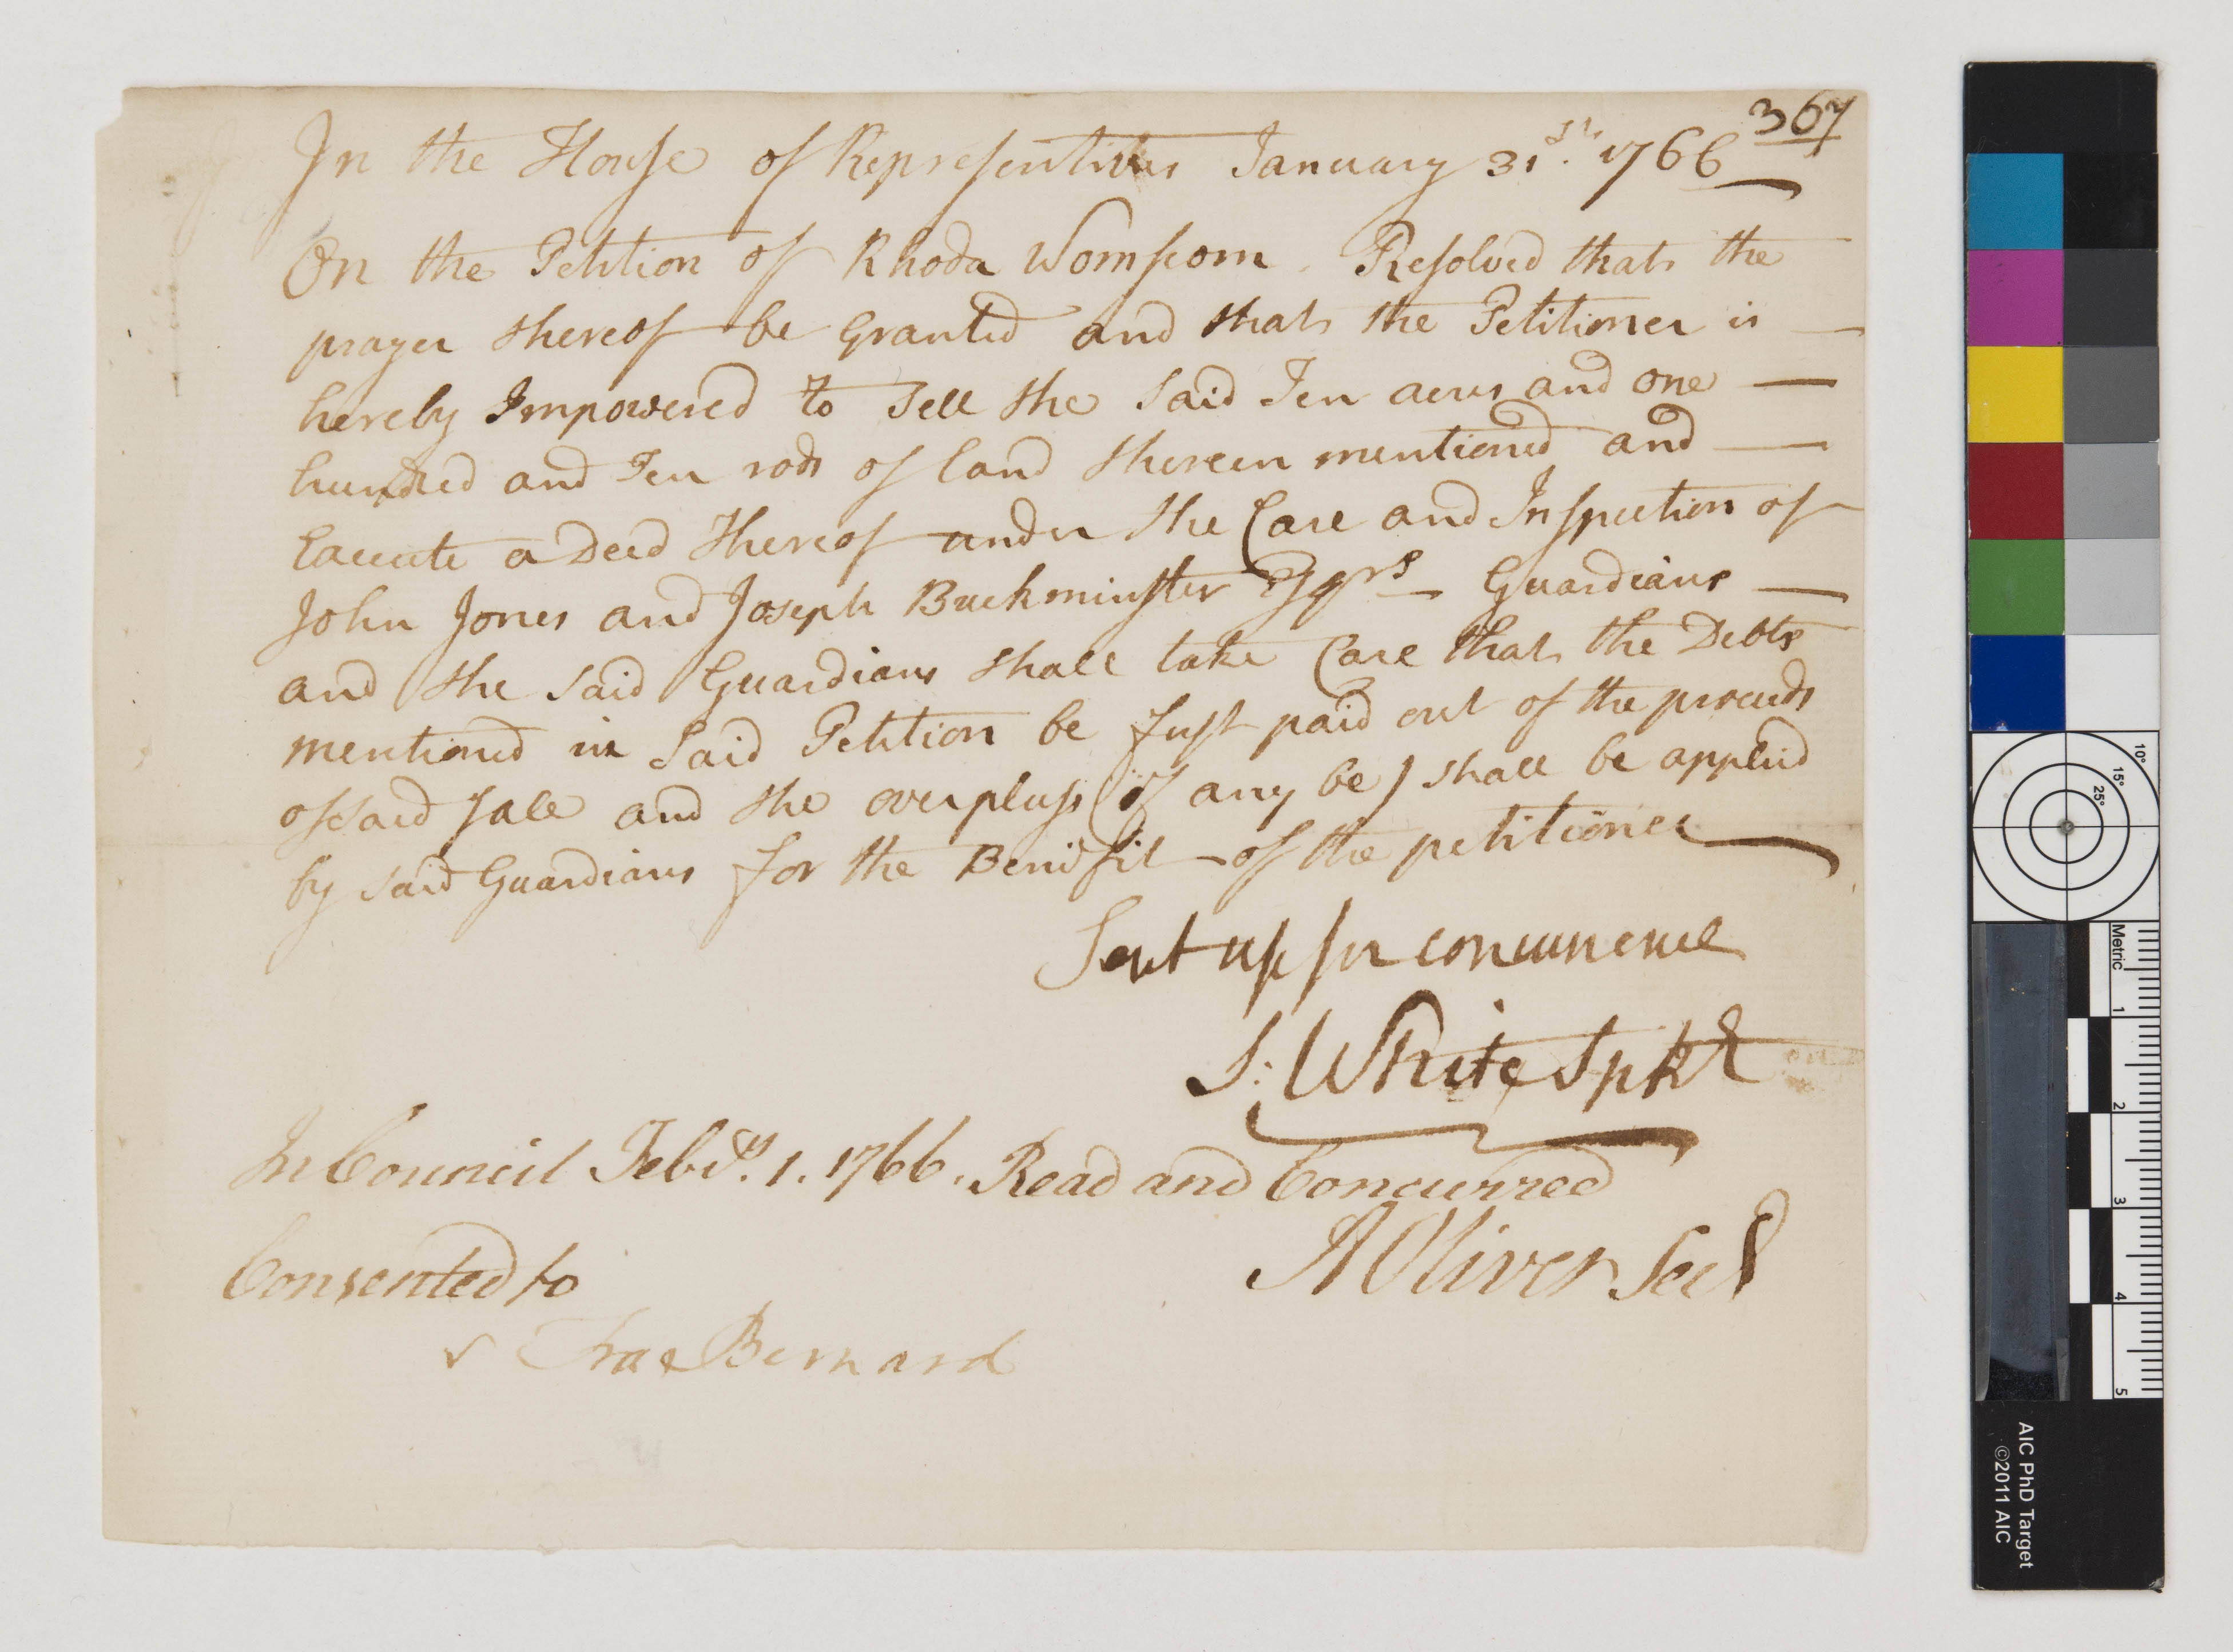 367
In the House of Representatives January 31st. 1766
On the Petition of Rhoda Womsom. Resolved that the
prayer thereof be Granted and that the Petitioner is
hereby Impowered to Sell the Said Ten acres and one
hundred and Ten rods of land therein mentioned and
Execute a Deed Thereof under the Care and Inspection of
John Jones and Joseph Buckminster Esqrs Guardians
and the said Guardians shall take Care that the Debts
mentioned in Said Petition be first paid out of the proceeds
of said Sale and the overpluss (if any be) shall be applied
by said Guardians for the Benifit of the petitioner
Sent up for concurrence
S: White Spkr
In Council Febry. 1. 1766. Read and Concurred
A Oliver Secy
Consented to
Fra Bernard
10°
15°
25°
Metric
1
2
3
4
5
AIC PhD Target
©2011 AIC